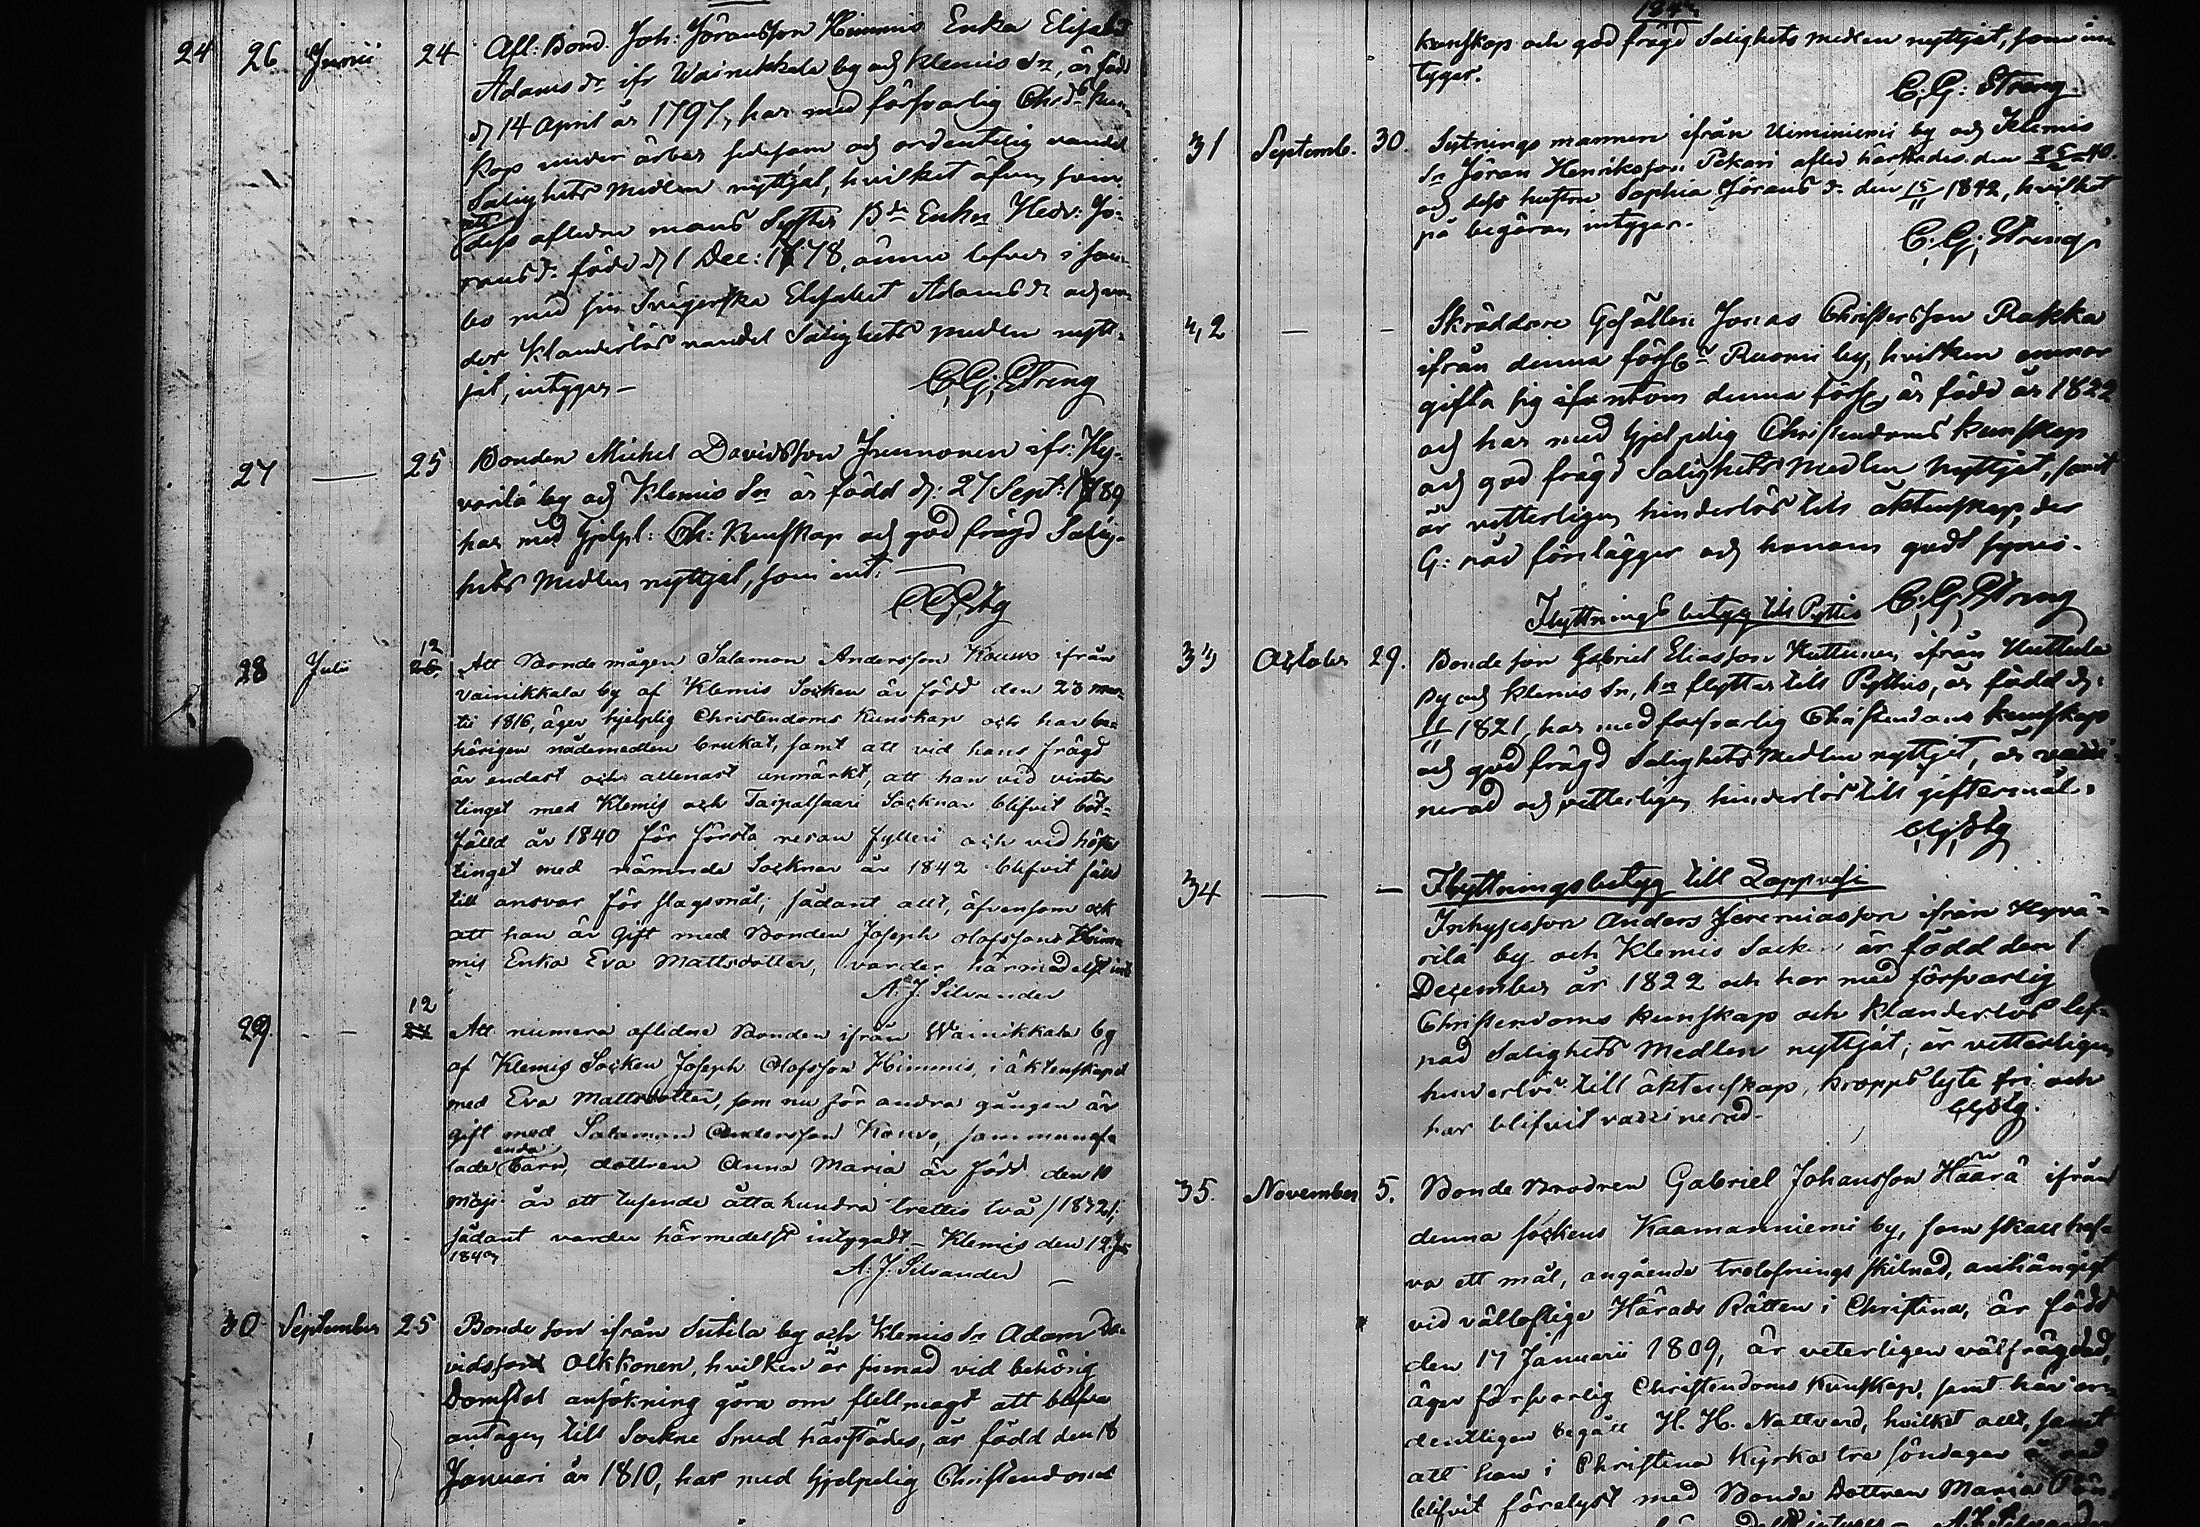 24 26 Junii 24 Afl: Bond. Joh: Jöransson Himmis Enka Elisabet
Adams dr ifr Wainikkala by och Klemis Sn, är född
d 14 April år 1797, har med försvarlig Chrds kun-
skap under ärbar sedesam och ordentelig vandel
Salighets Medlen nyttjat, hvilket äfven som
att
dess aflidne mans Syster Bde Enkn Hedv: Jö-
ransdr född d 1 Dec: 1778, ännu lefver i sam-
bo med sin Svägerska Elisabet Adamsdr och un-
der klanderlös vandel Salighets medlen nytt-
jat, intygas —
C. G. Streng
27 — 25 Bonden Michel Davidsson Inmonen ifr: Hy-
värilä by och Klemis Sn är född d: 27 Sept: 1789
har med hjelpl: Ch: Kunskap och god frägd Salig-
hets Medlen nyttjat, som int: —
C G Stg
28 Julii 12
26. Att Bondemågen Salamon Andersson Kouvo ifrån
Vainikkala by af Klemis Socken är född den 23 mar-
tii 1816, äger hjelplig Christendoms Kunskap och har be-
hörigen nådemedlen brukat, samt att vid hans frägd
är endast och allenast anmärkt, att han vid vinter
tinget med Klemis och Taipalsaari Socknar blifvit böt-
fälld år 1840 för första resan fylleri och vid höste
tinget med nämnde Socknar år 1842 blifvit fälld
till ansvar för slagsmål; sådant allt, äfvensom ock
att han är Gift med Bonden Joseph Olofssons Himm-
mis Enka Eva Mattsdotter, varder härmedelst int.
A. J. Silvander
29. - - 12
27 Att numera aflidne Bonden ifrån Wainikkala by
af Klemis Socken Joseph Olofsson Himmis, i äktenskapet
med Eva Mattsdotter, som nu för andra gången är
gift med Salamon Andersson Kouvo, sammanaf-
enda
lade barn, dottren Anna Maria är född den 10
maji år ett tusende åtta hundra trettio två /1832/,
sådant varder härmedelst intygadt — Klemis den 12 Juli
1843
A. J. Silvander
30 September 25 Bonde son ifrån Sutela by och Klemis Sn Adam Da-
vidsson Olkkonen, hvilken är sinnad vid behörig
Domstol ansökning göra om fullmagt att blifva
antagen till Sockne Smed härstädes, är född den 18
Januari år 1810, har med hjelpelig Christendoms
1843
kunskap och god frägd Salighets medlen nyttjat, som in-
tygas.
C. G. Streng
31 Septemb. 30. Sytnings mannen ifrån Uiminiemi by och Klemis
Sn Jöran Henriksson Pekari afled härstädes den 40.
och dess hustru Sophia Jöransdr den 15/11 1842, hvilket
på begäran intygas.
C. G. Streng
32 — - Skräddare Gesällen Jonas Christersson Rakka
ifrån denna förs:s Ruomi by, hvilken ernar
gifta sig utom denna förs: är född år 1822
och har med hjelpelig Christendoms kunskap
och god frägd Salighets Medlen nyttjat, samt
är vetterligen hinderlös till äktenskap, der
G: råd förelägges och honom godt synes.
C. G. Streng
Flyttnings betyg till Pyttis
33 October 29. Bonde son Gabriel Eliasson Huttunen ifrån Huttula
by och Klemis Sn, hn flyttar till Pyttis, är född d:
11/11 1821, har med försvarlig Christendoms kunskap
och god frägd Salighets Medlen nyttjat, är vacci-
nerad och vetterligen hinderlös till giftermål.
C G Stg
34 — — Flyttningsbetyg till Lappvesi
Inhysesson Anders Jeremiasson ifrån Hyvä-
rilä by och Klemis Socken är född den 1
December år 1822 och har med försvarlig
Christendoms kunskap och klanderlös lef-
nad Salighets Medlen nyttjat; är vetterligen
hinderlös till äktenskap, kroppslyte fri och
har blifvit vaccinerad.
C G Stg.
35. November 5. Bonde Brodren Gabriel Johansson Häärä ifrån
denna sockens Kaamanniemi by, som skall haf-
va ett mål, angående trolofnings skilnad, anhängigt
vid vällofliga Härads Rätten i Christina, är född
den 17 Januarii 1809, är veterligen välfrägdad,
äger försvarlig Christendoms Kunskap, samt har or-
dentligen begått H. H. Nattvard, hvilket allt, samt
att han i Christina Kyrka tre söndagar å rad
blifvit förelyst med Bonde Dottren Maria